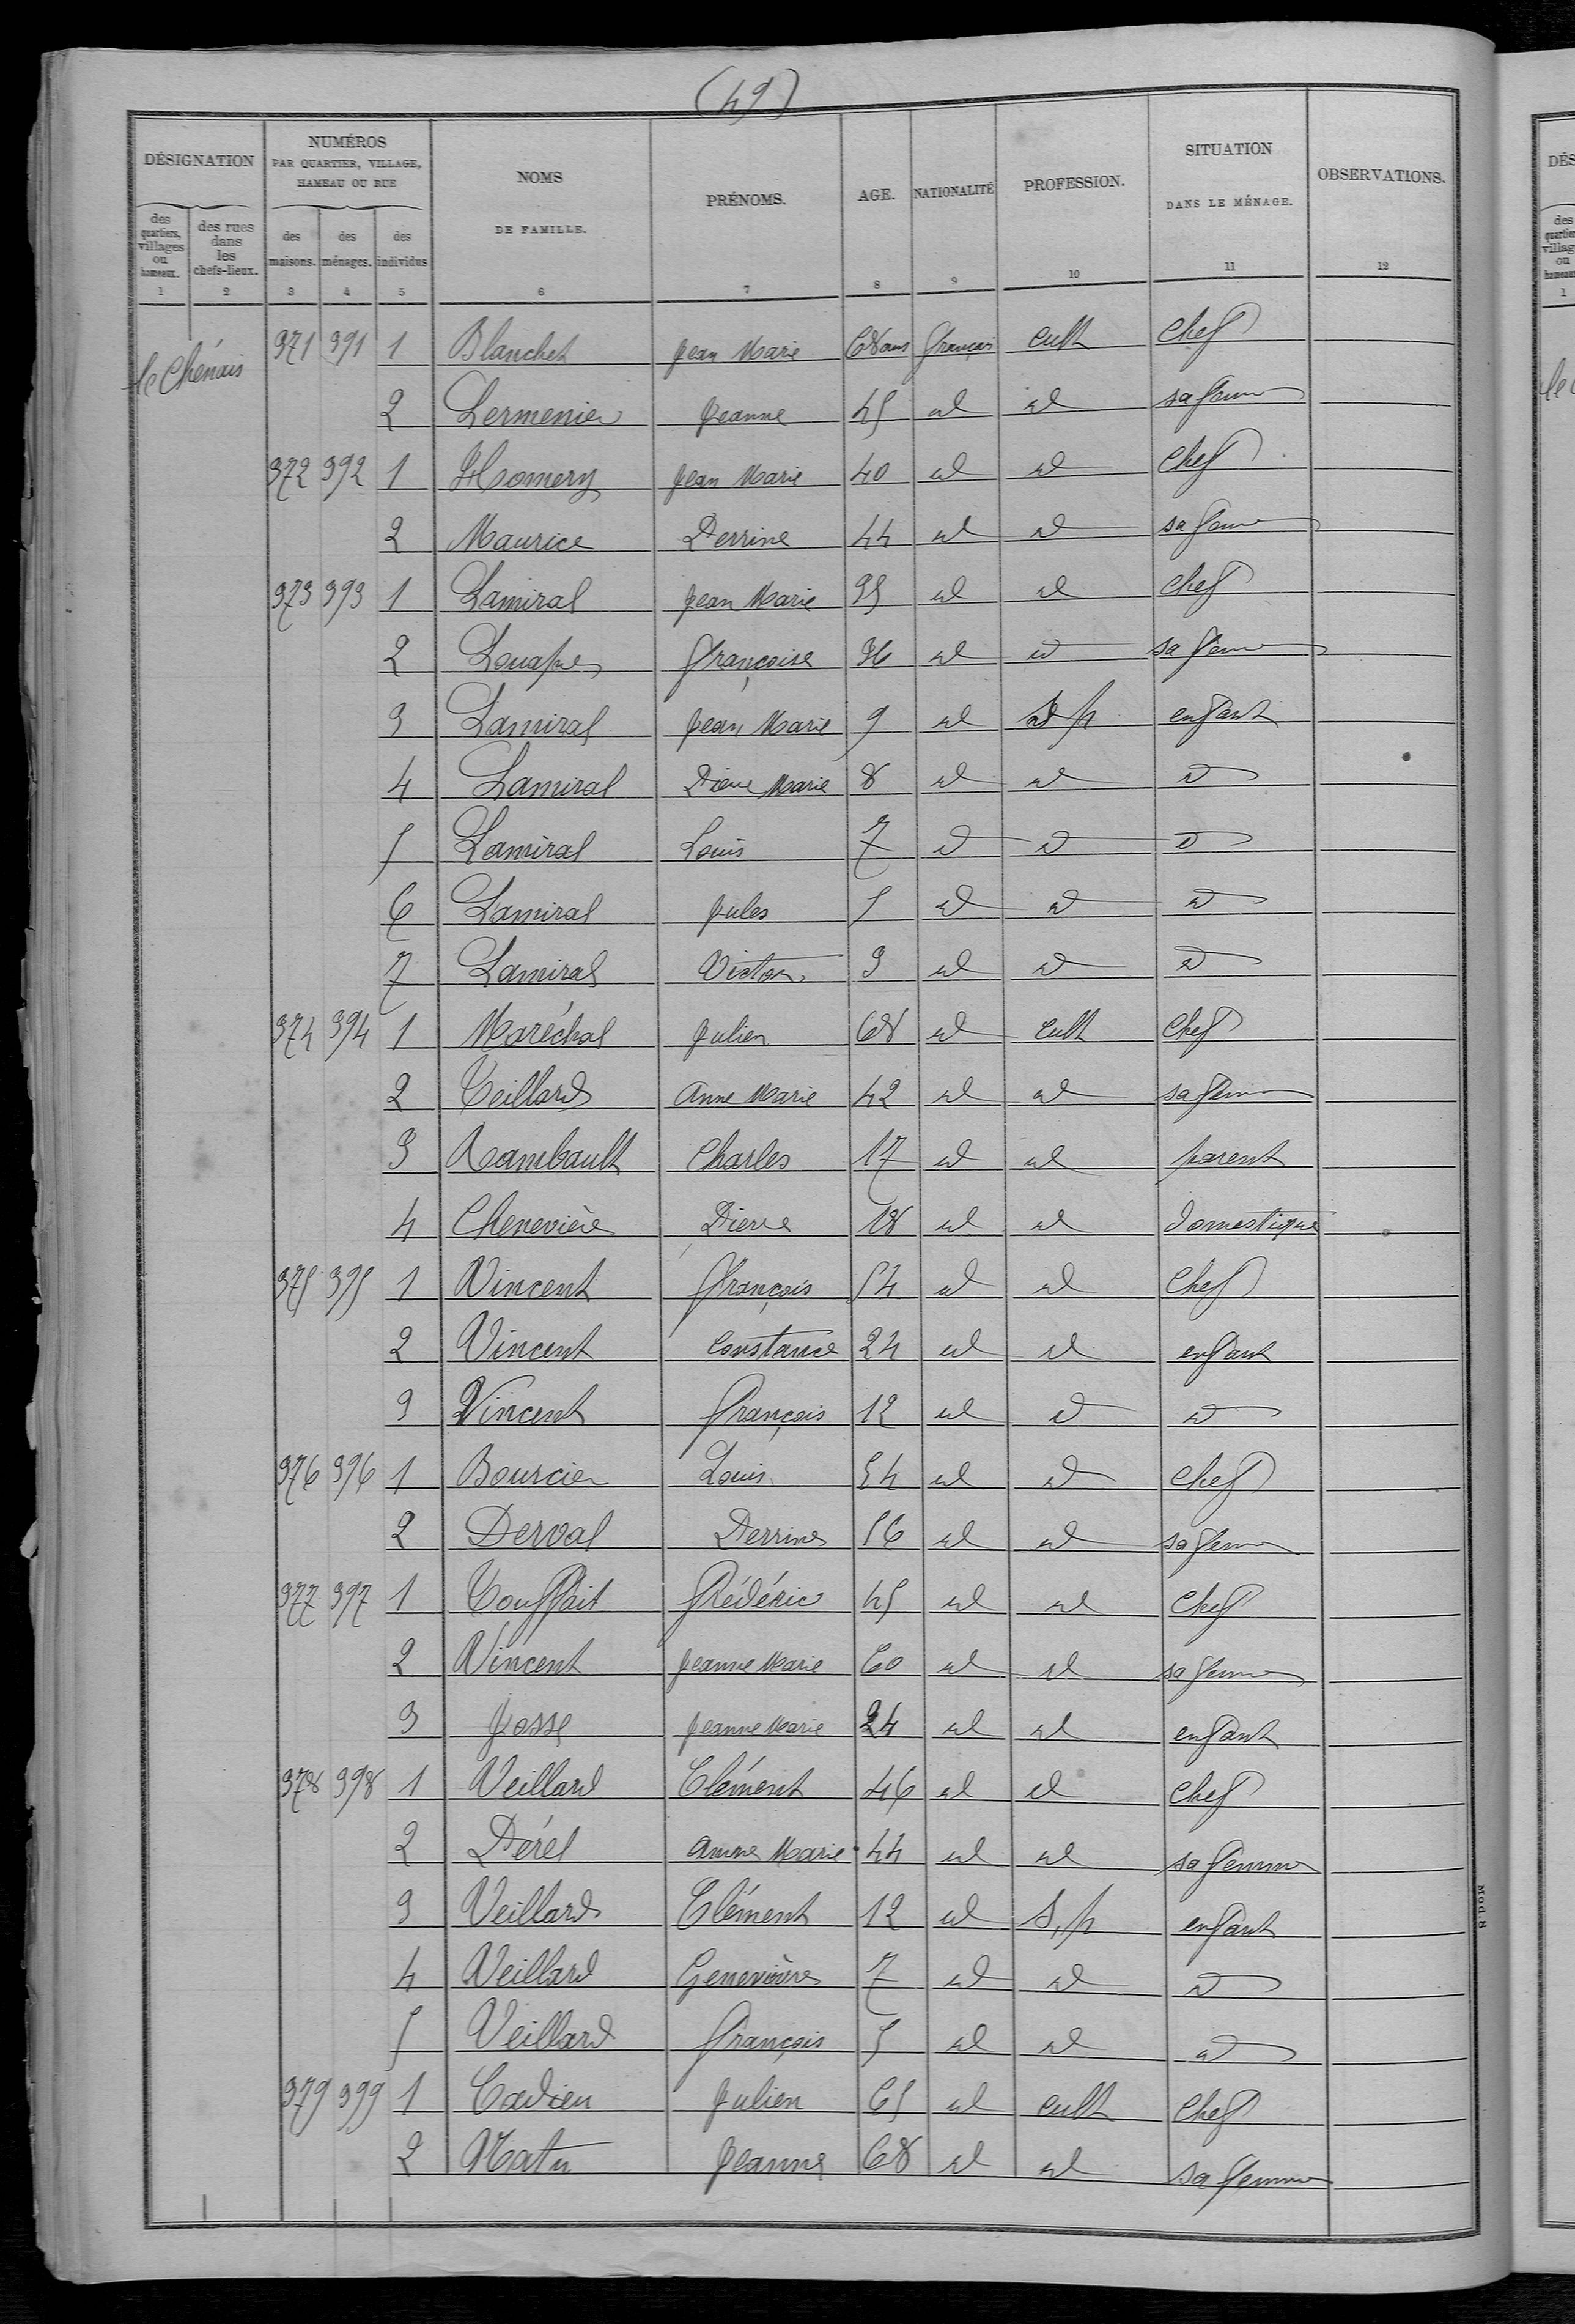 (49)
DÉSIGNATION NUMÉROS PAR QUARTIER, VILLAGE, HAMEAU OU RUE NOMS DE FAMILLE. PRÉNOMS. AGE. NATIONALITÉ PROFESSION. SITUATION DANS LE MÉNAGE. OBSERVATIONS.
des quartiers, villages ou hameaux. des rues dans les chefs-lieux. des maisons. des ménages. des individus
1 2 3 4 5 6 7 8 9 10 11 12
le Chénais 371 391 1 Blanchet Jean Marie 68 ans français cult chef
2 Lermenier Jeanne 45 id id sa femme
372 392 1 Homery Jean Marie 40 id id chef
2 Maurice Perrine 44 id id sa femme
373 393 1 Lamiral Jean Marie 35 id id chef
2 Françoise 36 id id sa femme
3 Lamiral Jean Marie 9 id s p enfant
4 Lamiral Pierre Marie 8 id id id
5 Lamiral Louis 7 id id id
6 Lamiral Jules 5 id id id
7 Lamiral Victor 3 id id id
374 394 1 Maréchal Julien 68 id cult chef
2 Veillard Anne Marie 42 id id sa femme
3 Rambault Charles 17 id id parent
4 Chenevière Pierre 18 id id domestique
375 395 1 Vincent François 54 id id chef
2 Vincent Constance 24 id id enfant
3 Vincent François 12 id id id
376 396 1 Bourcier Louis 54 id id chef
2 Derval Perrine 56 id id sa femme
377 397 1 Touffait Frédéric 45 id id chef
2 Vincent Jeanne Marie 60 id id sa femme
3 Josse Jeanne Marie 24 id id enfant
378 398 1 Veillard Clément 46 id id chef
2 Dérel Anne Marie 44 id id sa femme
3 Veillard Clément 12 id s.p enfant
4 Veillard Geneviève 7 id id id
5 Veillard François 5 id id id
379 399 1 Cadieu Julien 65 id cult chef
2 Jeanne 68 id id sa femme
Mod. 8